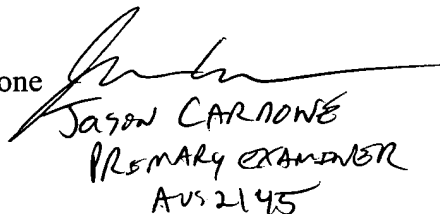 one
JASON CARDONE
PRIMARY EXAMINER
AU 2145